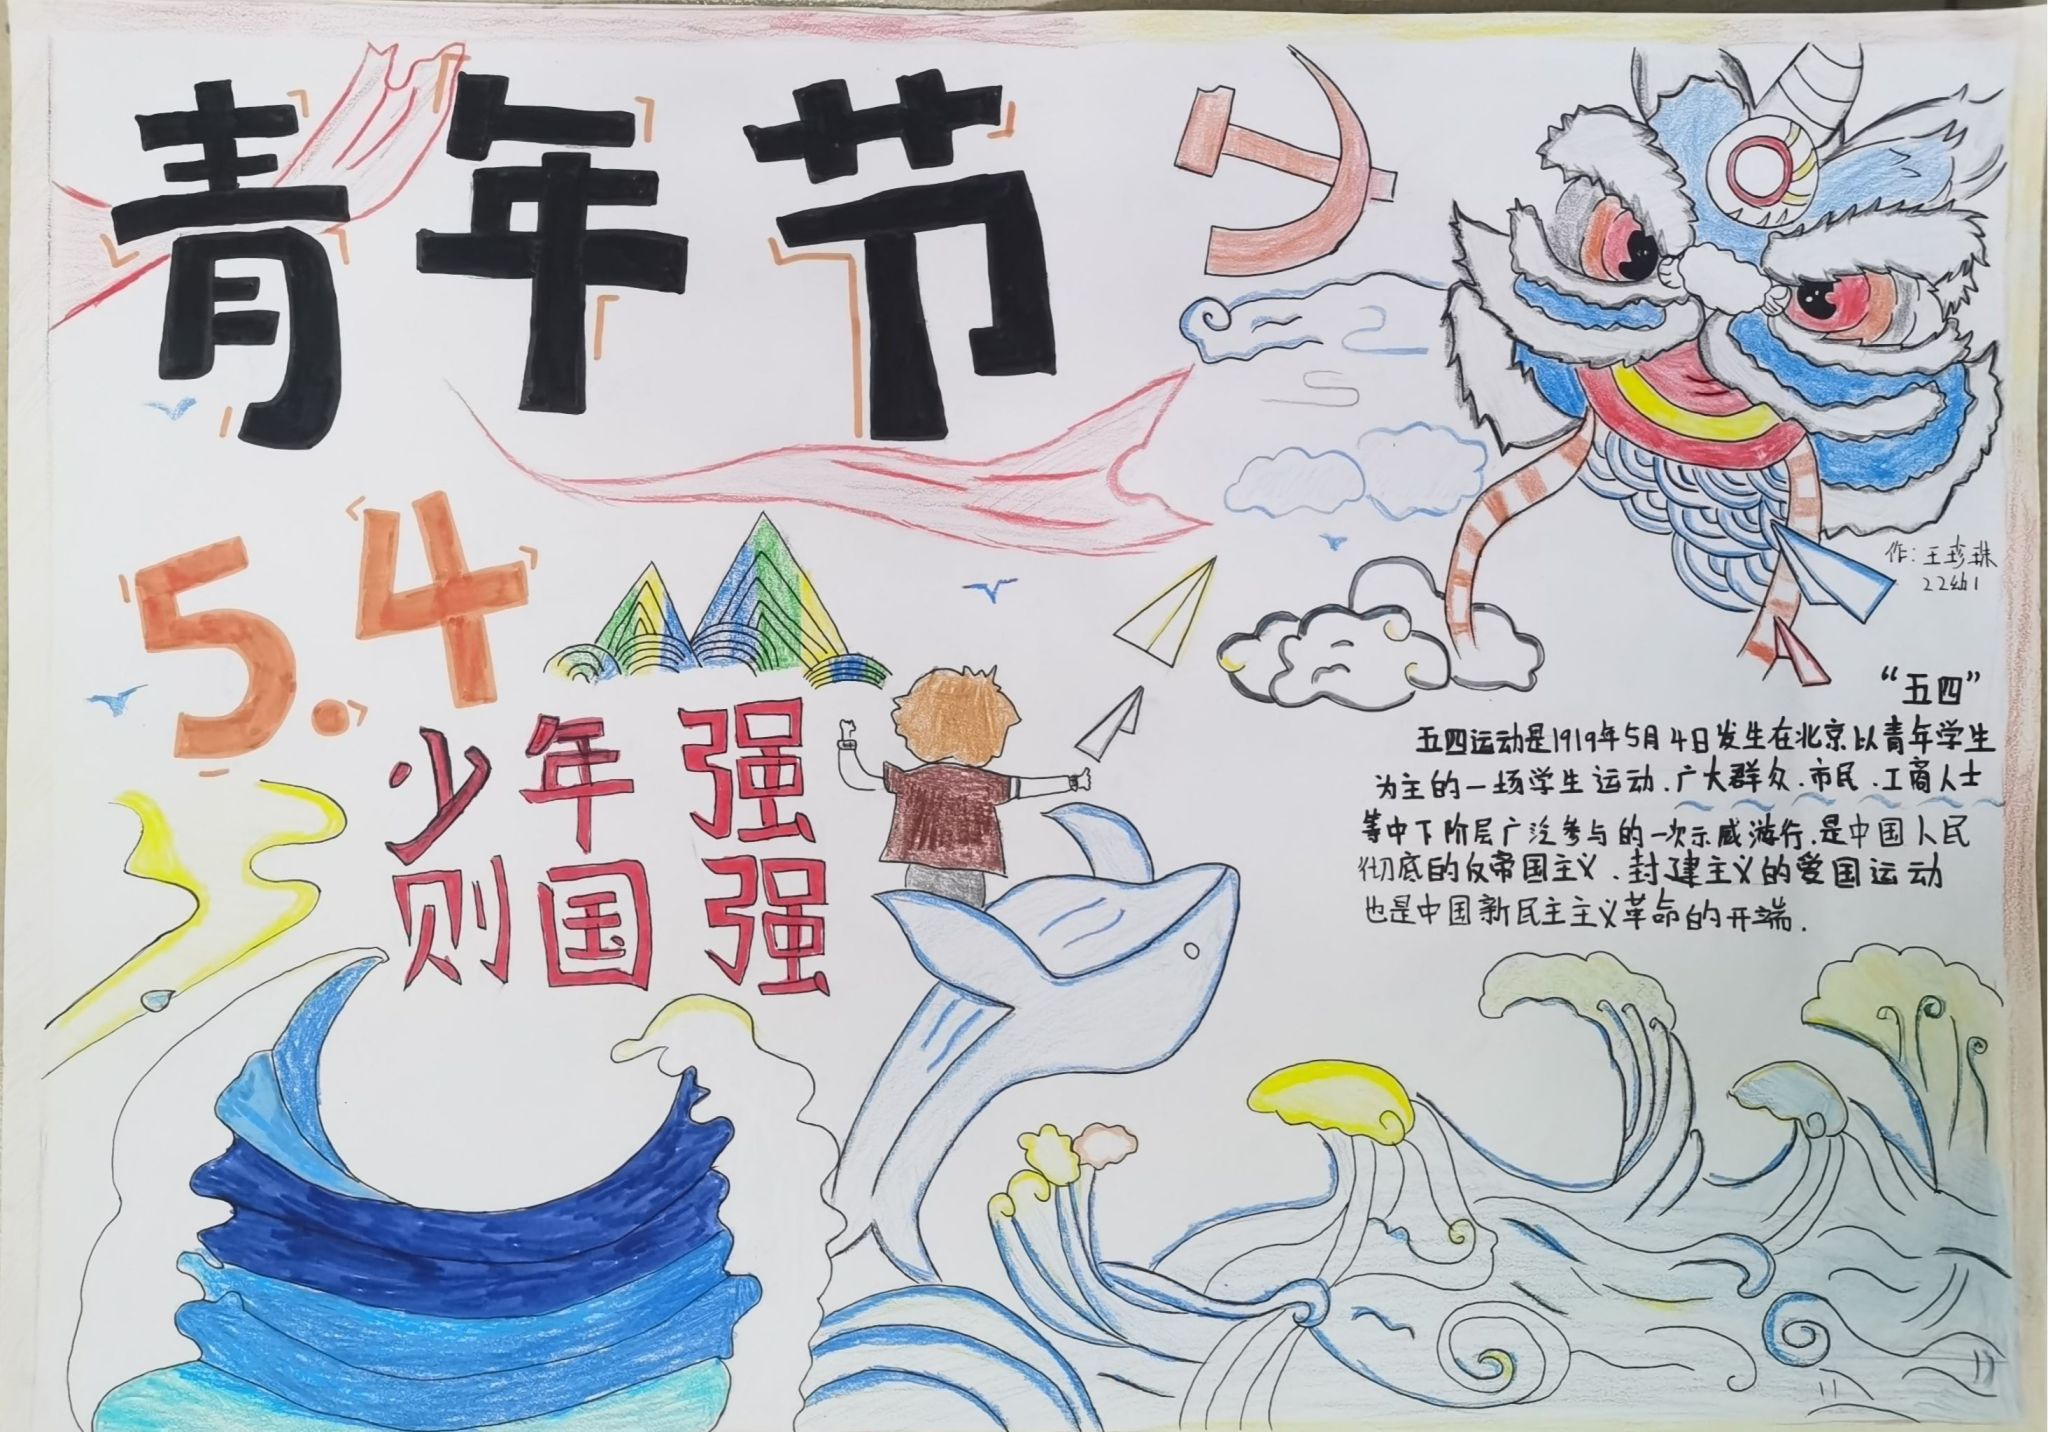 青年节
5.4
少年强
则国强
作:王珍珠
22幼1
“五四”
五四运动是1919年5月4日发生在北京以青年学生
为主的一场学生运动.广大群众.市民.工商人士
等中下阶层广泛参与的一次示威游行.是中国人民
彻底的反帝国主义.封建主义的爱国运动
也是中国新民主主义革命的开端.